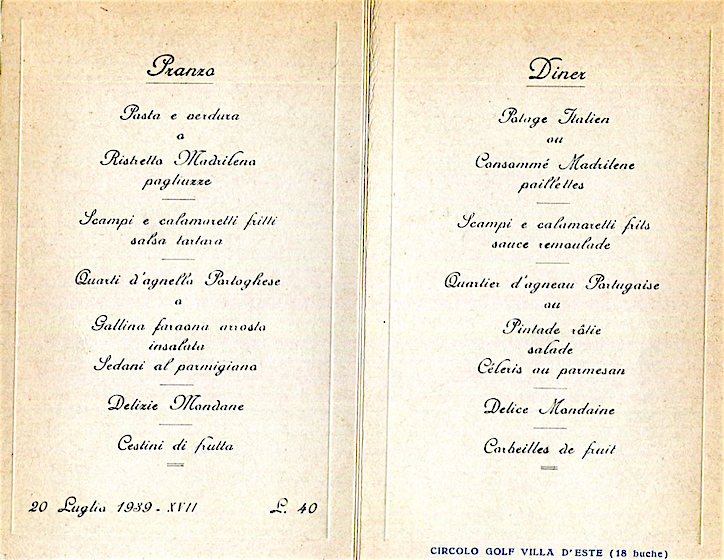 Pranzo
Pasta e verdura
o
Ristretto Madrilena
pagliuzze
Scampi e calamaretti fritti
salsa tartara
Quarti d'agnello Portoghese
o
Gallina faraona arrosto
insalata
Sedani al parmigiano
Delizie Mondane
Cestini di frutta
20 Luglio 1939 - XVII L. 40
Diner
Potage Italien
ou
Consommé Madrilene
paillettes
Scampi e calamaretti frits
sauce remoulade
Quartier d'agneau Portugaise
ou
Pintade râtie
salade
Céleris au parmesan
Delice Mondaine
Corbeilles de fruit
CIRCOLO GOLF VILLA D'ESTE (18 buche)